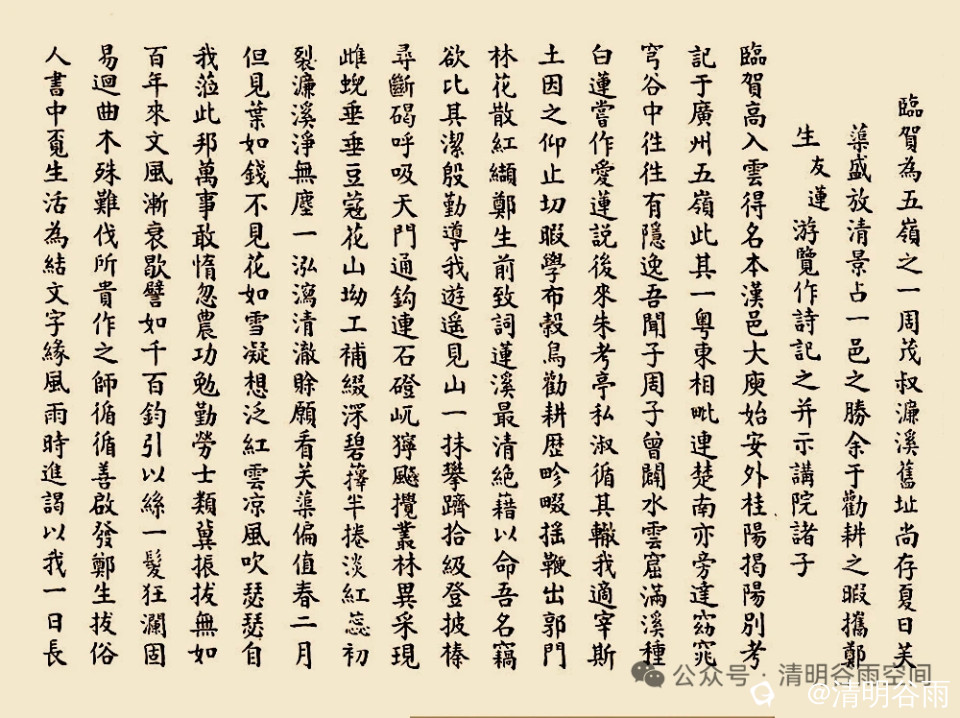 臨賀為五嶺之一周茂叔濂溪舊址尚存夏日芙
蕖盛放清景占一邑之勝余于勸耕之暇攜鄭
生友蓮游覽作詩記之并示講院諸子
臨賀高入雲得名本漢邑大庾始安外桂陽揭陽別考
記于廣州五嶺此其一粵東相毗連楚南亦旁達窈窕
穹谷中往往有隱逸吾聞子周子曾闢水雲窟滿溪種
白蓮嘗作愛蓮説後來朱考亭私淑循其轍我適宰斯
土因之仰止切暇學布穀鳥勸耕歷畛畷搖鞭出郭門
林花散紅纈鄭生前致詞蓮溪最清絕藉以命吾名竊
欲比其潔殷勤導我遊遥見山一抹攀躋拾級登披榛
尋斷碣呼吸天門通鈎連石磴屼獰飈攪叢林異采現
雌蜺垂垂豆蔻花山坳工補綴深碧蘀半捲淡紅蕊初
裂濂溪淨無塵一泓瀉清澈賒願看芙蕖偏值春二月
但見葉如錢不見花如雪凝想泛紅雲凉風吹瑟瑟自
我蒞此邦萬事敢惰忽農功勉勤勞士類冀振拔無如
百年來文風漸衰歇譬如千百鈞引以絲一髮狂瀾固
易迴曲木殊難伐所貴作之師循循善啟發鄭生拔俗
人書中覓生活為結文字緣風雨時進謁以我一日長
公众号·清明谷雨空间
@清明谷雨